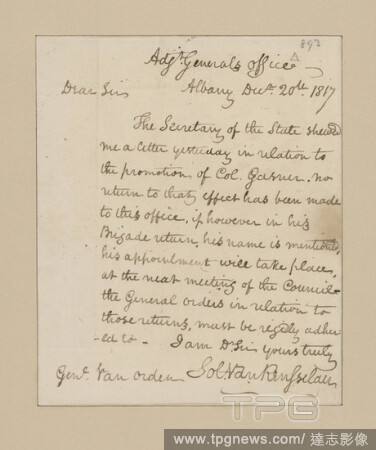 893
Adjt. Generals office
Albany Decr. 20th. 1817
Dear Sir
The Secretary of the State shewed
me a letter yesterday in relation to
the promotion of Col. Gasner. no
return to that effect has been made
to this office, if however in his
Brigade return, his name is mentioned,
his appointment will take place,
at the next meeting of the Council-
the General orders in relation to
those returns, must be regidly adher
-ed to - I am Dr. Sir yours truly
Sol. Van Rensselaer
Genl. Van Orden
TPG
www.tpgnews.com / 達志影像